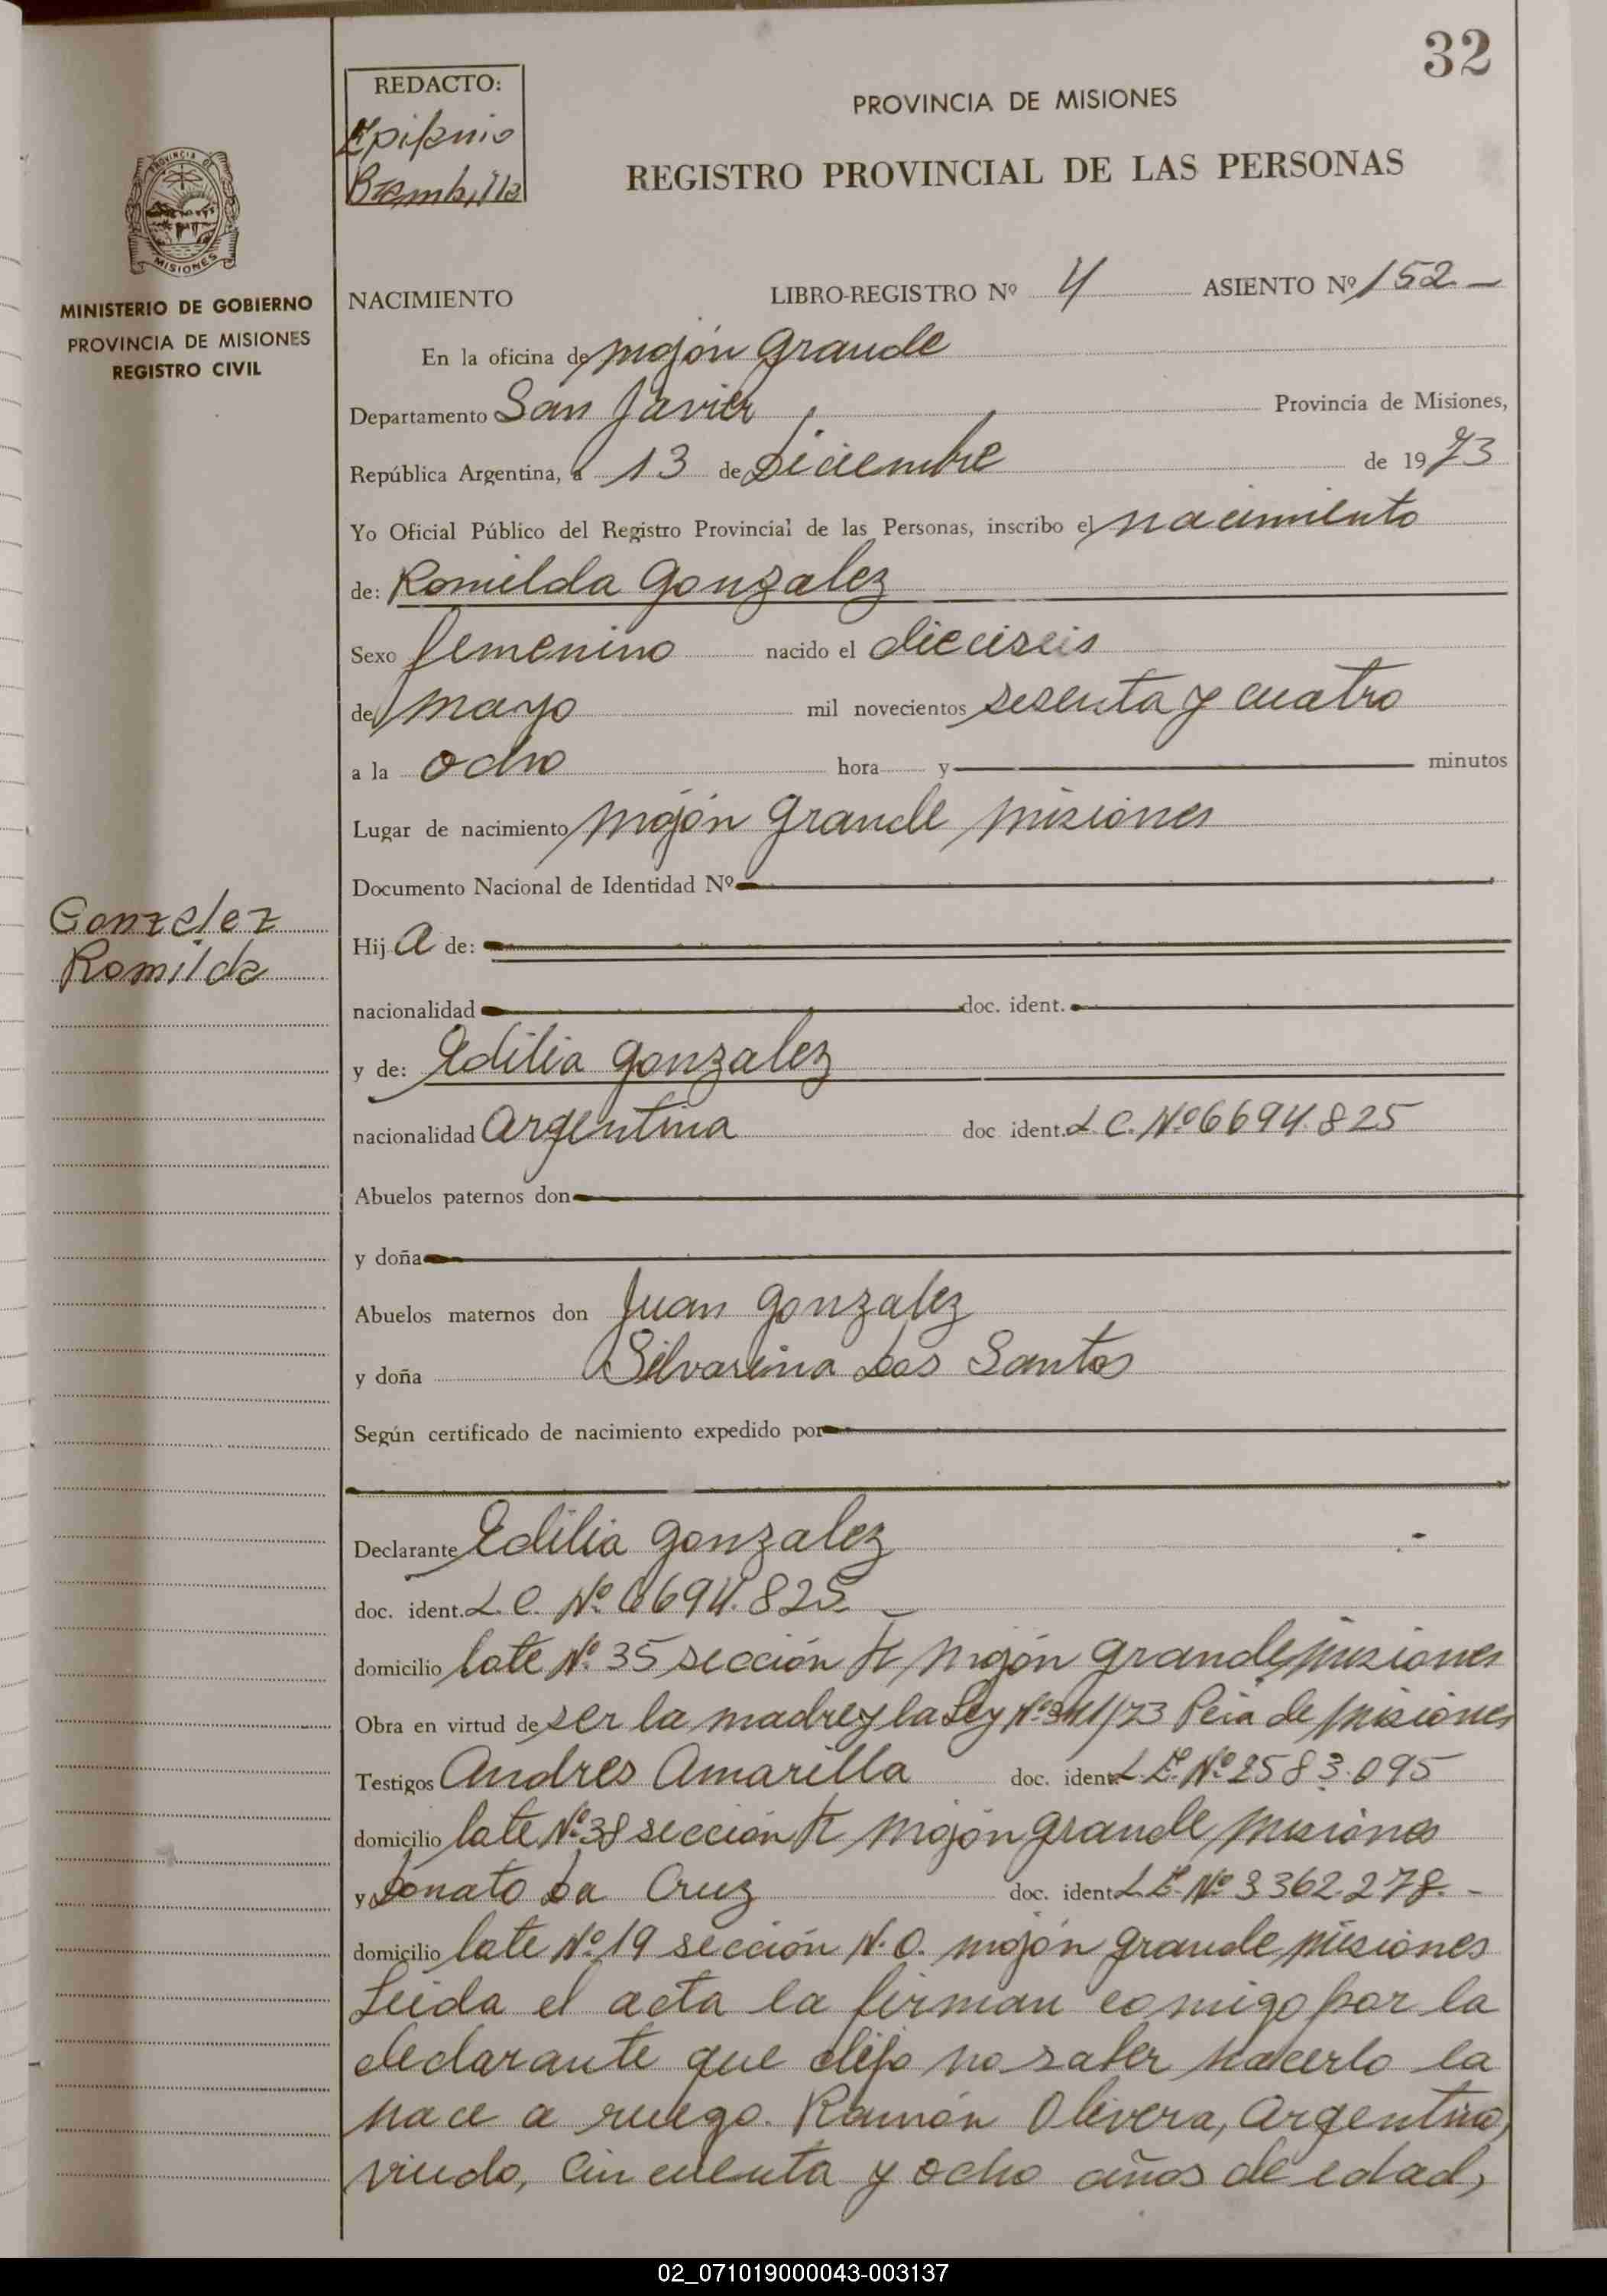 32
REDACTO:
Epifanio
Brambilla
PROVINCIA DE MISIONES
REGISTRO PROVINCIAL DE LAS PERSONAS
PROVINCIA DE
MISIONES
MINISTERIO DE GOBIERNO
PROVINCIA DE MISIONES
REGISTRO CIVIL
NACIMIENTO LIBRO-REGISTRO Nº 4 ASIENTO Nº 152
En la oficina de mojón grande
Departamento San Javier Provincia de Misiones,
República Argentina, a 13 de Diciembre de 1973
Yo Oficial Público del Registro Provincial de las Personas, inscribo el nacimiento
de: Romilda Gonzalez
Sexo femenino nacido el dieciseis
de mayo mil novecientos sesenta y cuatro
a la ocho hora y minutos
Lugar de nacimiento mojón grande misiones
Documento Nacional de Identidad Nº
Gonzalez
Romilda
Hija de:
nacionalidad doc. ident.
y de: Edilia Gonzalez
nacionalidad Argentina doc ident. L C. Nº 6694.825
Abuelos paternos don
y doña
Abuelos maternos don Juan Gonzalez
y doña Silvareina Dos Santos
Según certificado de nacimiento expedido por
Declarante Edilia Gonzalez
doc. ident. L. C. Nº 6694.825.
domicilio lote Nº 35 sección misiones mojón grande
Obra en virtud de ser la madre y la Ley Pcia de misiones
Testigos Andres Amarilla doc. ident. L.E. Nº 2583.095
domicilio lote Nº 38 sección mojón grande misiones
y Donato Da Cruz doc. ident L E. Nº 3362.278.-
domicilio lote Nº 19 sección N.O. mojón grande misiones
Leida el acta la firman comigo por la
declarante que dijo no saber hacerlo la
hace a ruego. Ramón Olivera, Argentino,
viudo, cincuenta y ocho años de edad,
02_071019000043-003137